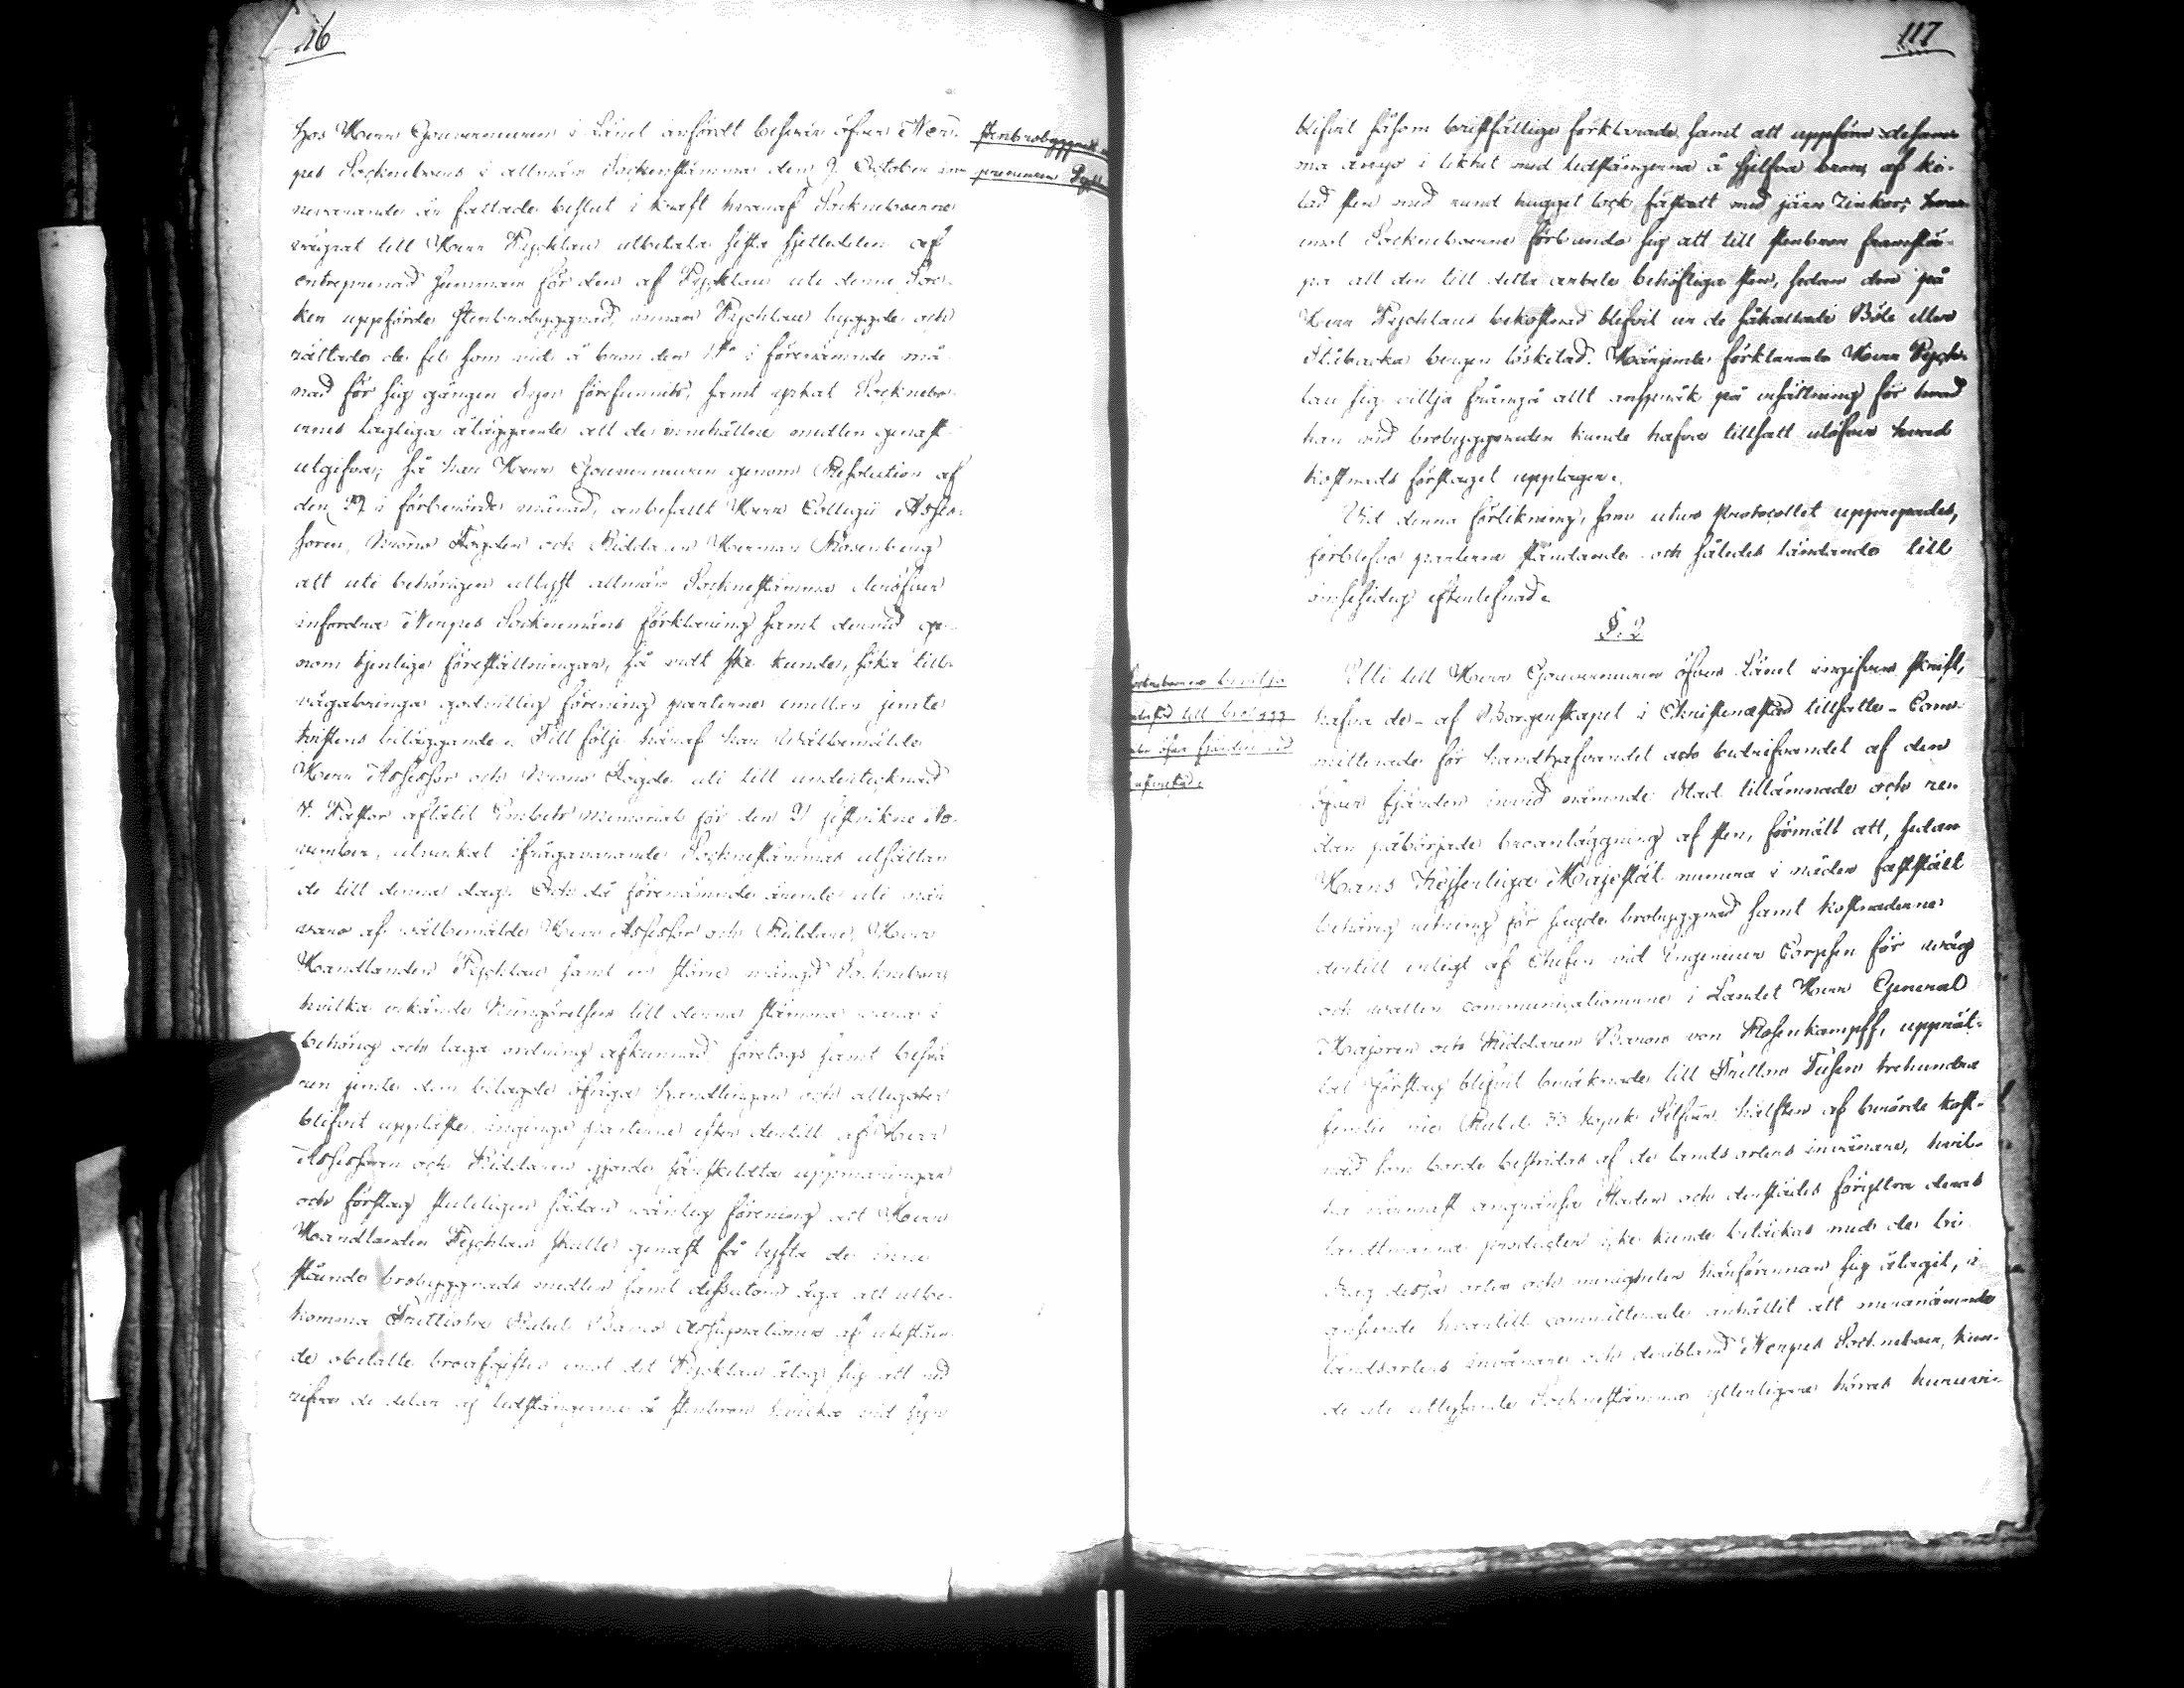 116
Hos Herr Gouverneuren i Länet anfördt besvär öfver Ner-
pes Sockneboers i allmän Sockenstämma den 9 October in-
nevarande år fattade beslut i kraft hvaraf Sockneboerne
vägrat till Herr Tychlau utbetala sista fjerdedelen af
entreprenad summan för den af Tychlau uti denne Soc-
ken uppförde stenbrobyggnad, innan Tychlau byggde och
rättade de fel som vid å bron den i förenämnde må-
nad för sig gången Syn förefunnits, samt yrkat Sockne-
ernes lagliga åläggande att de innehållne medlen genast
utgifva; så har Herr Gouverneuren genom Resolution af
den 29 i förberörde månad, anbefallt Herr Collegii Asses-
soren, Krono Fogden och Riddaren Herman Rosenberg
att uti behörigen utlyst allmän Socknestämma deröfver
infordra Nerpes Sockenmäns förklaring samt dervid ge-
nom tjenliga föreställningar, så vidt ske kunde, söka till-
vägabringa godvillig förening parterne emellan jemte
tvistens biläggande. Till följe häraf har Wälbemälde
Herr Assessor och Krono Fogde uti till undertecknad
V. Pastor aflåtit Embets memorial för den 21 sistvikne No-
vember, utverkat ifrågavarande Socknestämmas utsättan-
de till denna dag. Och då förenämnde ärende uti när-
varo af wälbemälde Herr Assessor och Riddare, Herr
Handlanden Tychlau samt en större mängd Sockneboer,
hvilka erkände Kungörelsen till denna stämma vara i
behörig och laga ordning afkunnad, företogs samt besvä-
ren jemte dem bilagde öfriga handlingar och allegater
blifvit uppläste, ingingo parterne efter dertill af Herr
Assessoren och Riddaren gjorde särskildta uppmaningar
och förslag sluteligen sådan vänlig förening att Herr
Handlanden Tychlau skulle genast få lyfta de inne-
stående brobyggnads medlen samt dessutom äga att utbe-
komma Trettiotre Rubel Banco Assignationer af utestäen-
de obetalte broafgifter emot det Tychlau åtog sig att ned-
rifva de delar af ledstängerne å stenbron hvilka vid syn
stenbrobyggnads
117
blifvit såsom bristfällige förklarade samt att uppföra desam-
ma ånyo i likhet med ledstängerna å sjelfva bron, af ki-
lad sten med rundt hugget lock fästadt med järn Zinkor; hvar-
emot Sockneboerne förbundo sig att till stenbron framska-
pa all den till detta arbete behöfliga sten, sedan den på
Herr Tychlaus bekostnad blifvit ur de såkallade Böle eller
Stubacka bergen löskilad. Härjemte förklarade Herr Tych-
lau sig villja frångå allt anspråk på ersättning för hvad
han vid brobyggnaden kunde hafva tillsatt utöfver hvad
kostnads förslaget upptager.
Vid denna förlikning, som utur Protocollet upprepades,
förblefvo parterne ståndande och således ländande till
ömsesidig efterlefnad.
§. 2
Uti till Herr Gouverneuren öfver Länet ingifven skrift,
hafva de af Borgerskapet i Christinæstad tillsatte Com-
mitterade för handhafvandet och bedrifvandet af den
öfver fjärden invid nämnde Stad tillämnade och re-
dan påbörjade broanläggning af sten, förmält att, sedan
Hans Kejserliga Majestät numera i nåder fastställt
behörig ritning för sagde brobyggnad samt kostnaderne
dertill enligt af Chefen vid Ingenieur Corpsen för wäg
och watten communicationerne i Landet Herr General
Majoren och Riddaren Baron von Rosenkampff, upprät-
tat förslag blifvit beräknade till Tretton Tusen trehundra
femtio nio Rubel 33 kopek Silfver, hälften af berörde kost-
nad som borde bestridas af de landsortens invånare, hvil-
ka närmast angränsa Staden och derstädes föryttra deras
landtmanna producter icke kunde betäckas med de bi-
drag dessa orter och menigheter härförinnan sig åtagit, i
anseende hvartill committerade anhållit att meranämnde
landsorters invånare och deribland Nerpes Sockneboer, kun-
de uti utlysande Socknestämma ytterligare höras huruvi-
Sockneboerne bevilja
till brobygg-
öfver fjärden vid